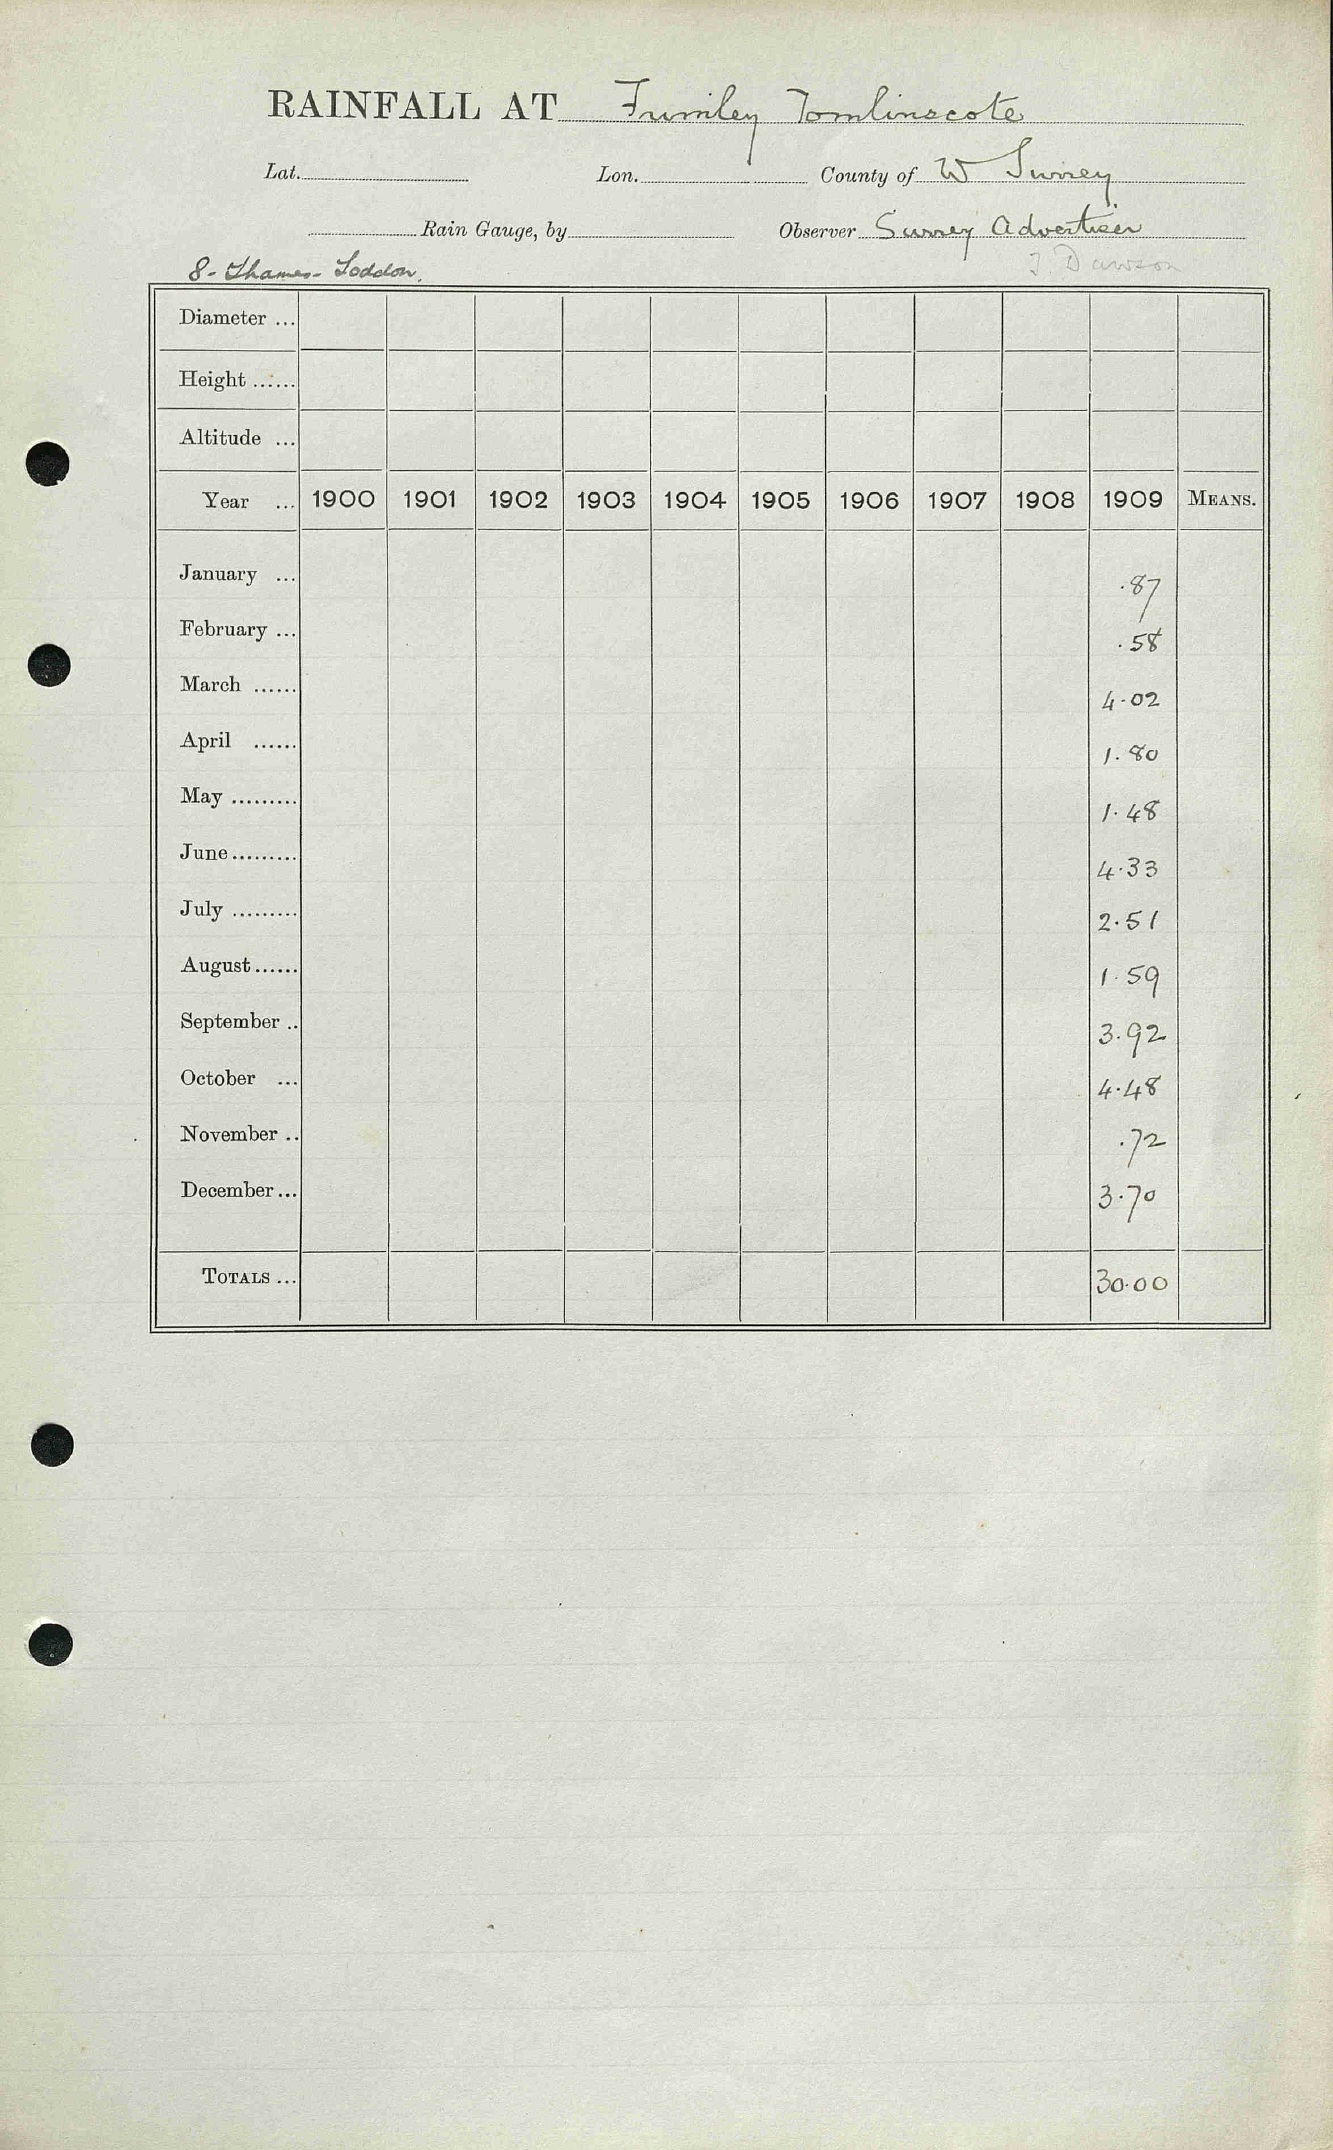 RAINFALL AT Frimley Tomlinscote
Lat. Lon. County of W Surrey
Rain Gauge, by Observer Surrey Advertiser
8 - Thames - Loddon. J Dawson
Diameter ...
Height ......
Altitude ...
Year ... 1900 1901 1902 1903 1904 1905 1906 1907 1908 1909 MEANS.
January ... .87
February ... .58
March ...... 4.02
April ...... 1.80
May ......... 1.48
June ......... 4.33
July ......... 2.51
August ...... 1.59
September .. 3.92
October ... 4.48
November .. .72
December ... 3.70
TOTALS ... 30.00